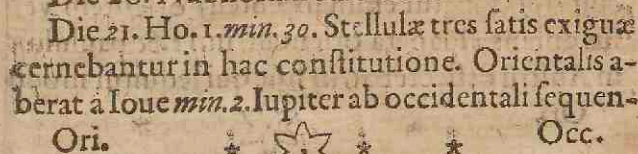 Die 21. Ho. 1. min. 30. Stellulæ tres ſatis exiguæ
cernebantur in hac conſtitutione. Orientalis a-
berat à Ioue min. 2. Iupiter ab occidentali ſequen-
Ori. Occ.